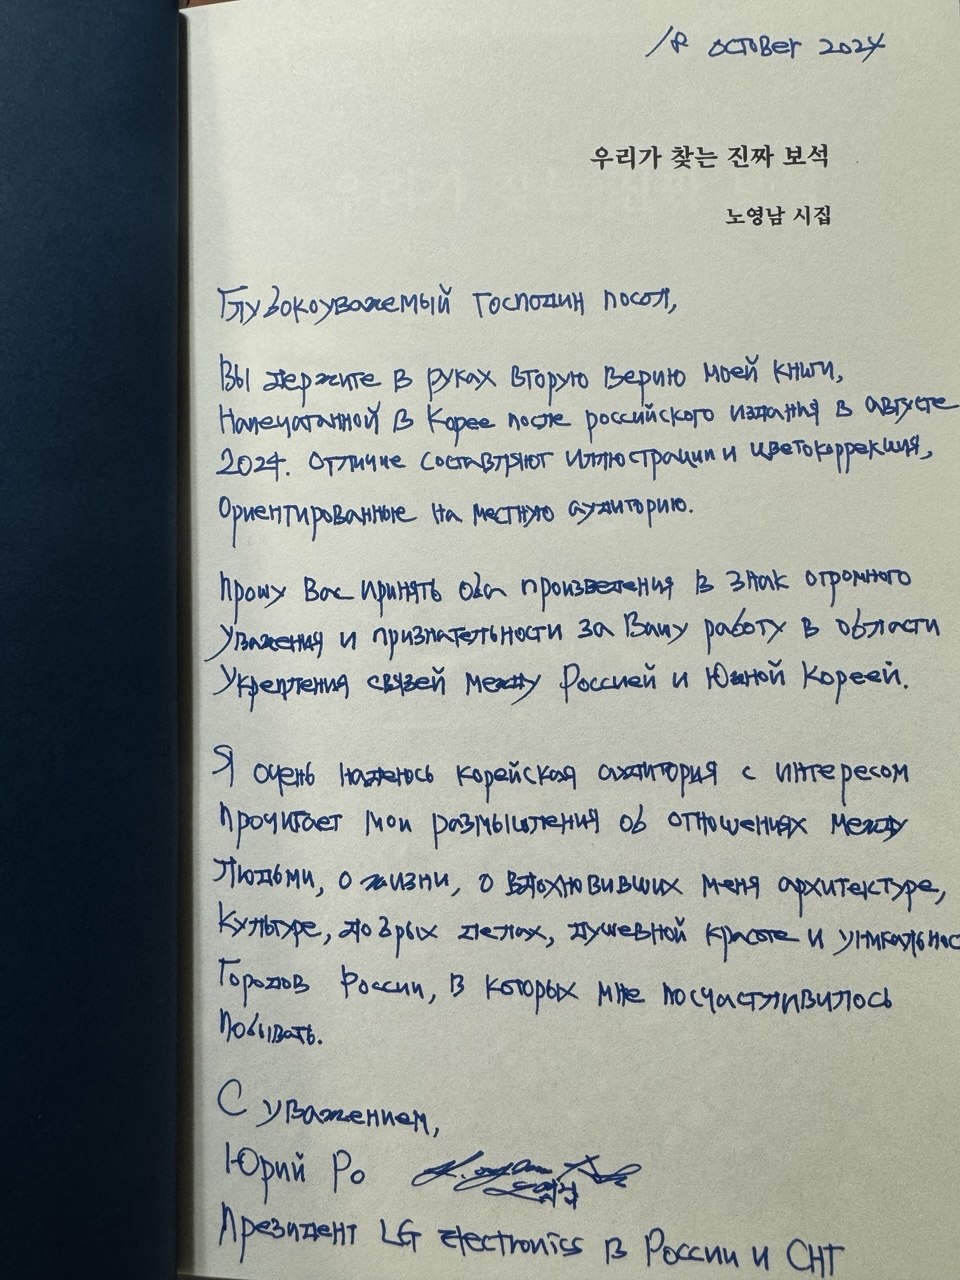 18 October 2024
우리가 찾는 진짜 보석
노영남 시집
Глубокоуважаемый Господин посол,
Вы держите в руках вторую верию моей книги,
Напечатанной в Корее после российского издания в августе
2024. Отличие составляют иллюстрации и цветокоррекция,
Ориентированные на местную аудиторию.
Прошу Вас принять оба произведения в знак огромного
Уважения и признательности за Вашу работу в области
Укрепления связей между Россией и Южной Кореей.
Я очень надеюсь корейская аудитория с интересом
Прочитает мои размышления об отношениях между
Людьми, о жизни, о вдохновивших меня архитектуре,
Культуре, добрых делах, душевной красоте и уникальнос
Городов России, в которых мне посчастливилось
Побывать.
С уважением,
Юрий Ро
Президент LG Electronics в России и СНГ